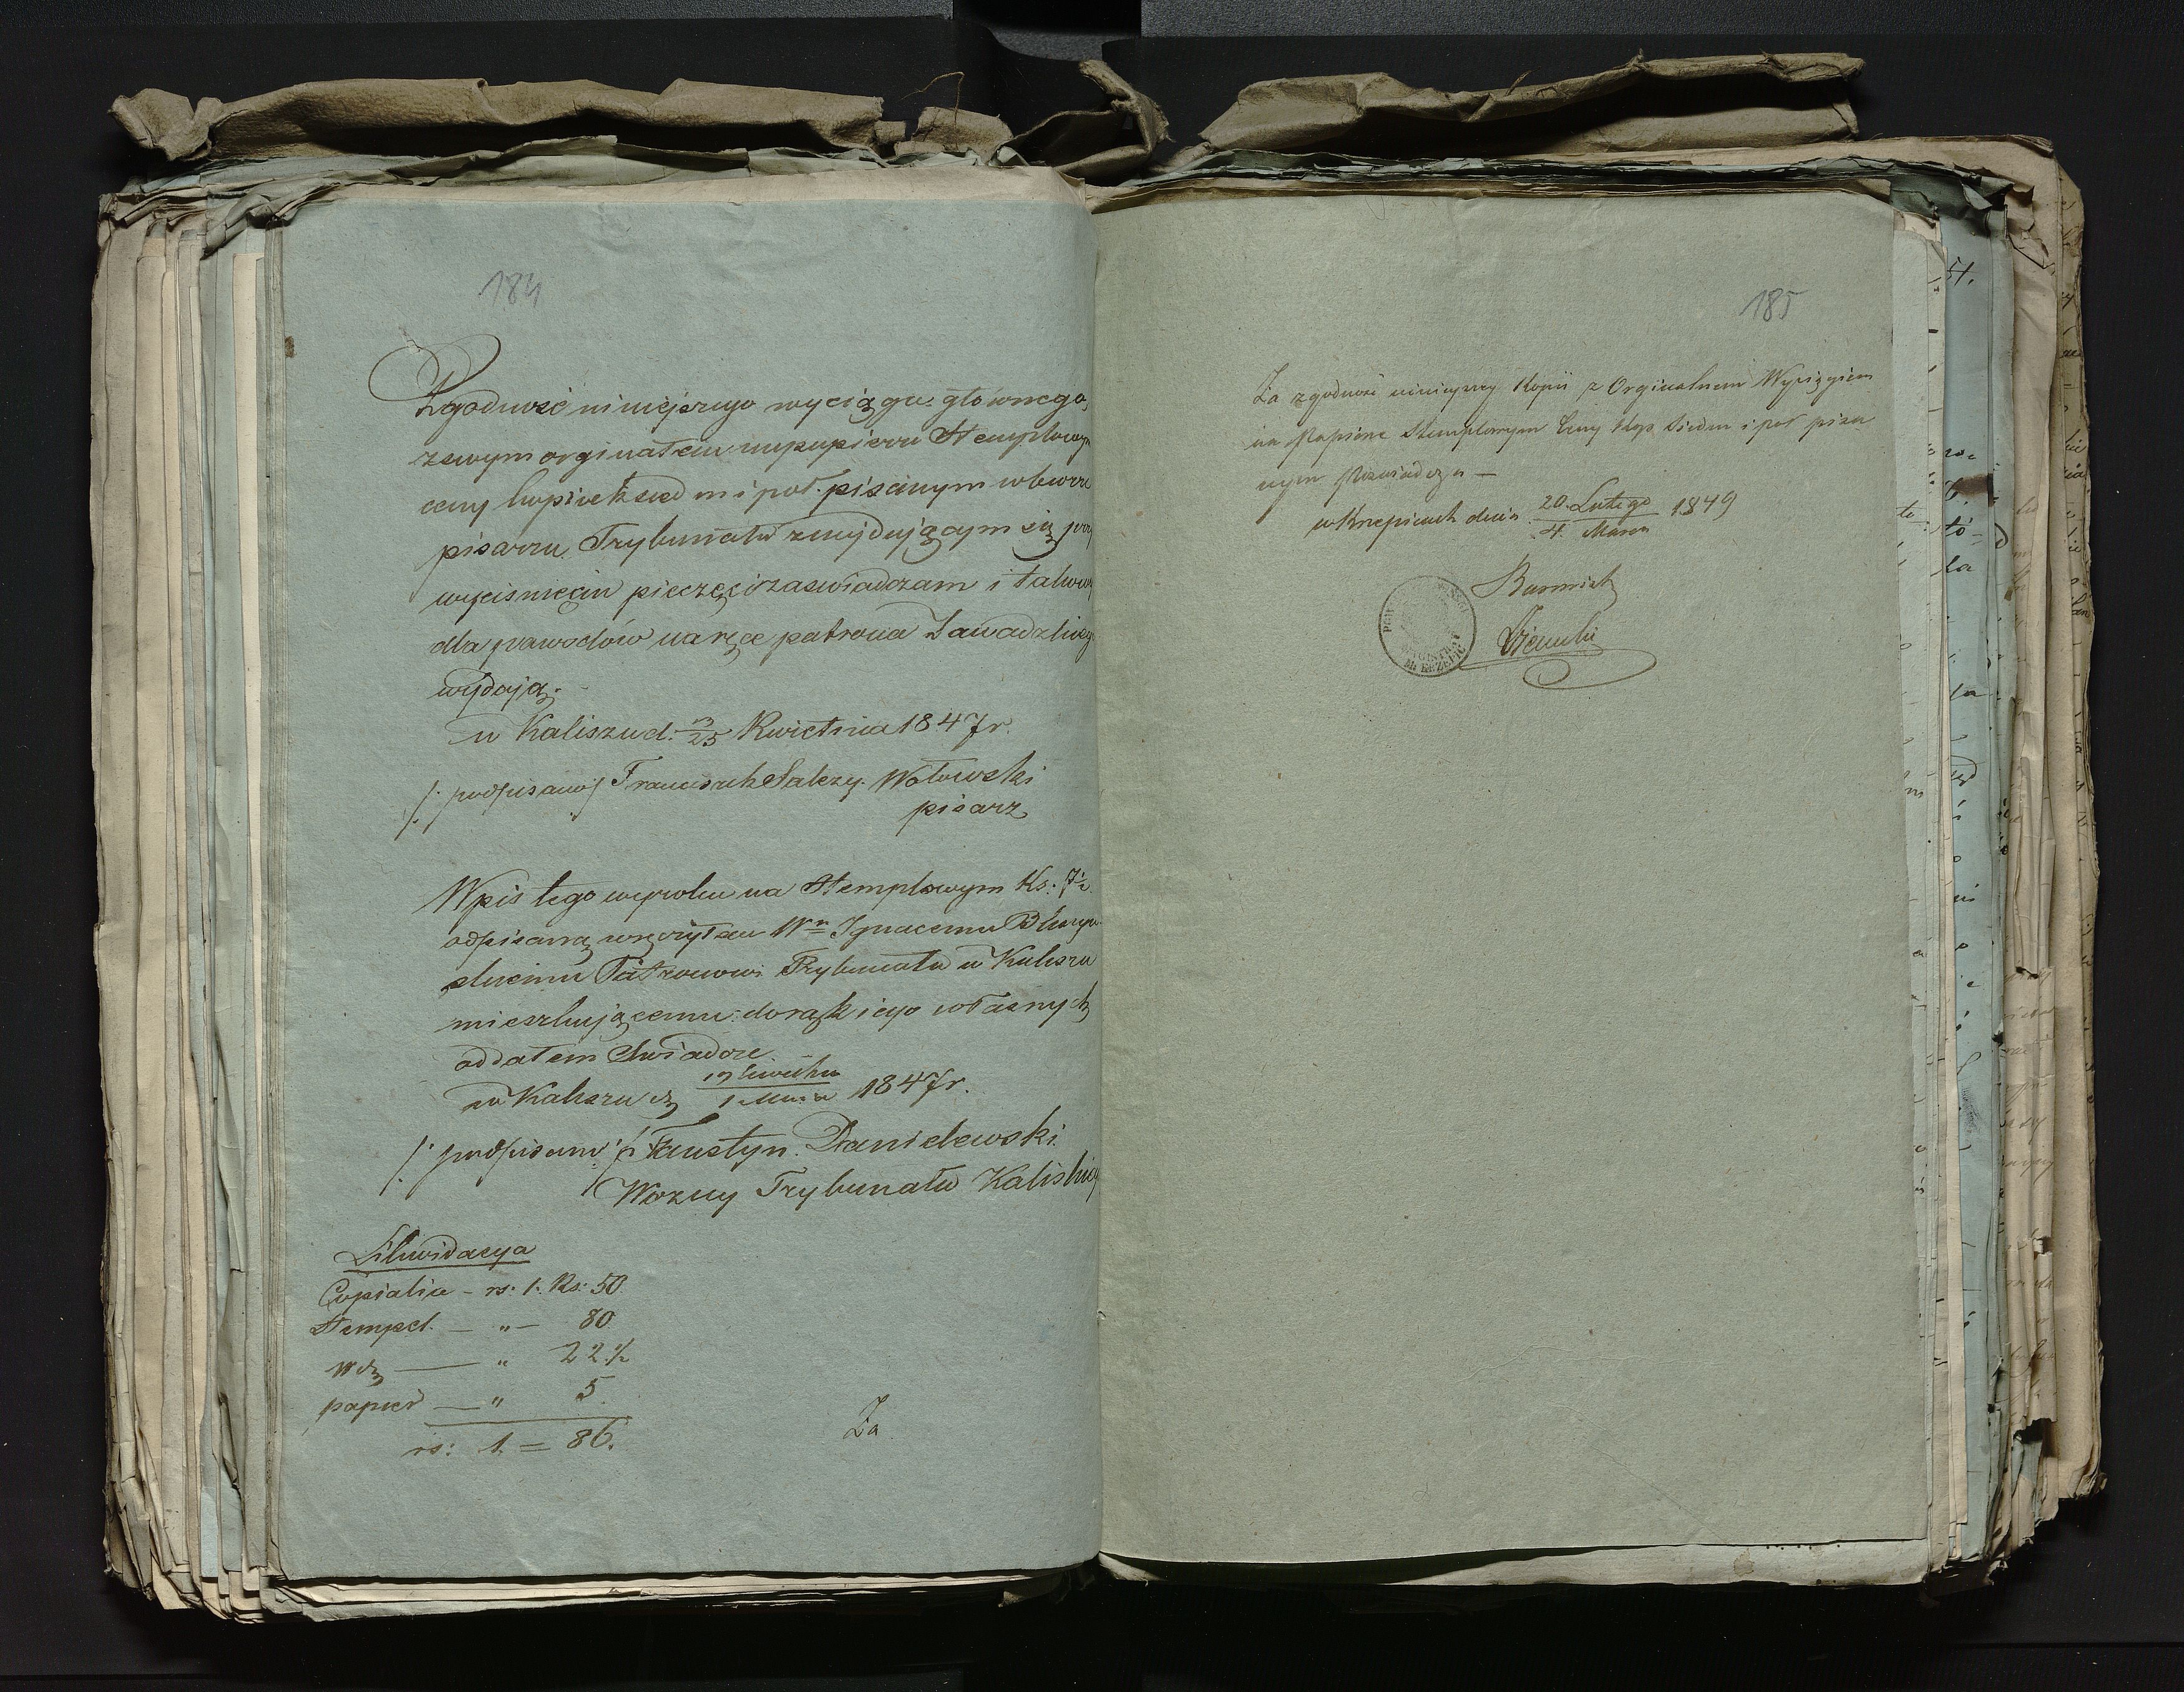 184
Zgodność niniejszego wyciągu głównego,
zswym orginałem na papierze Stemplowym
ceny kopiek siedm i pół pisanym w biorze
pisarza Trybunału znajdującym się przy
wyciśnięciu pieczęci zaswiadczam i takowy
dla powodów na ręce patrona Zawadzkiego
wydaję.
w Kaliszu d: 13/25 Kwietnia 1847 r.
/: podpisano/ Franciszek Salezy Wołowski
pisarz
Wpis tego wyroku na Stemplowym Ks: 7½
odpisaną wręczyłem Wu Ignacemu
Patronowi Trybunału w Kaliszu
mieszkującemu do rąk jego własnych
oddałem Swiadczę
w Kaliszu d 19 Kwietnia / 1 Maja 1847 r.
/: podpisano :/ Faustyn Danielewski
Wozny Trybunału Kaliskiego
Likwidacya
Copialia - rs: 1. Ks: 50
Stempel — " — 80
Wd — " 22½
papier — " 5.
rs: 1 = 86.
Za
185
Za zgodność niniejszey Kopii z Orginalnem Wyciągiem
na Papierze Stemplowym Ceny kop. Siedm i pół pisa
nym Poswiadcza —
w Krzepicach dnia 20 Lutego / 4 Marca 1849
Burmistrz
MAGISTRAT
M. KRZEPIC